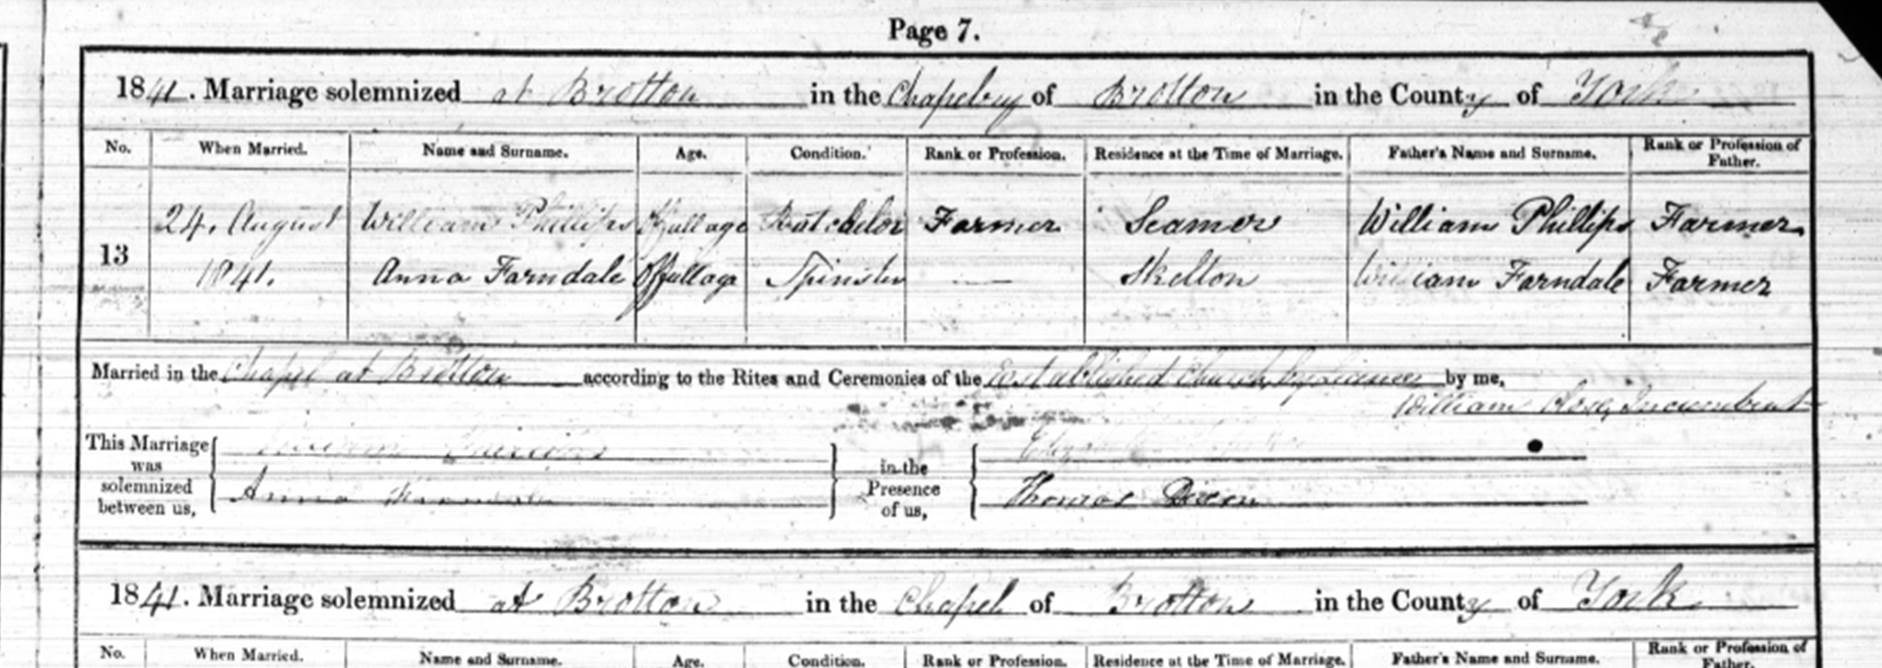 Page 7.
1841. Marriage solemnized at Brotton in the Chapelry of Brotton in the County of York
No. When Married. Name and Surname. Age. Condition. Rank or Profession. Residence at the Time of Marriage. Father's Name and Surname. Rank or Profession of Father.
24. August William Phillips Of full age Batchelor Farmer Seamer William Phillips Farmer
13
1841. Anna Farndale Of full age Spinster — Skelton William Farndale Farmer
Married in the Chapel at Brotton according to the Rites and Ceremonies of the Established Church, by Licence by me,
William Close, Incumbent
This Marriage was solemnized between us, William Phillips
Anna Farndale
in the Presence of us,
Thomas Dixon
1841. Marriage solemnized at Brotton in the Chapel of Brotton in the County of York
No. When Married. Name and Surname. Age. Condition. Rank or Profession. Residence at the Time of Marriage. Father's Name and Surname. Rank or Profession of Father.